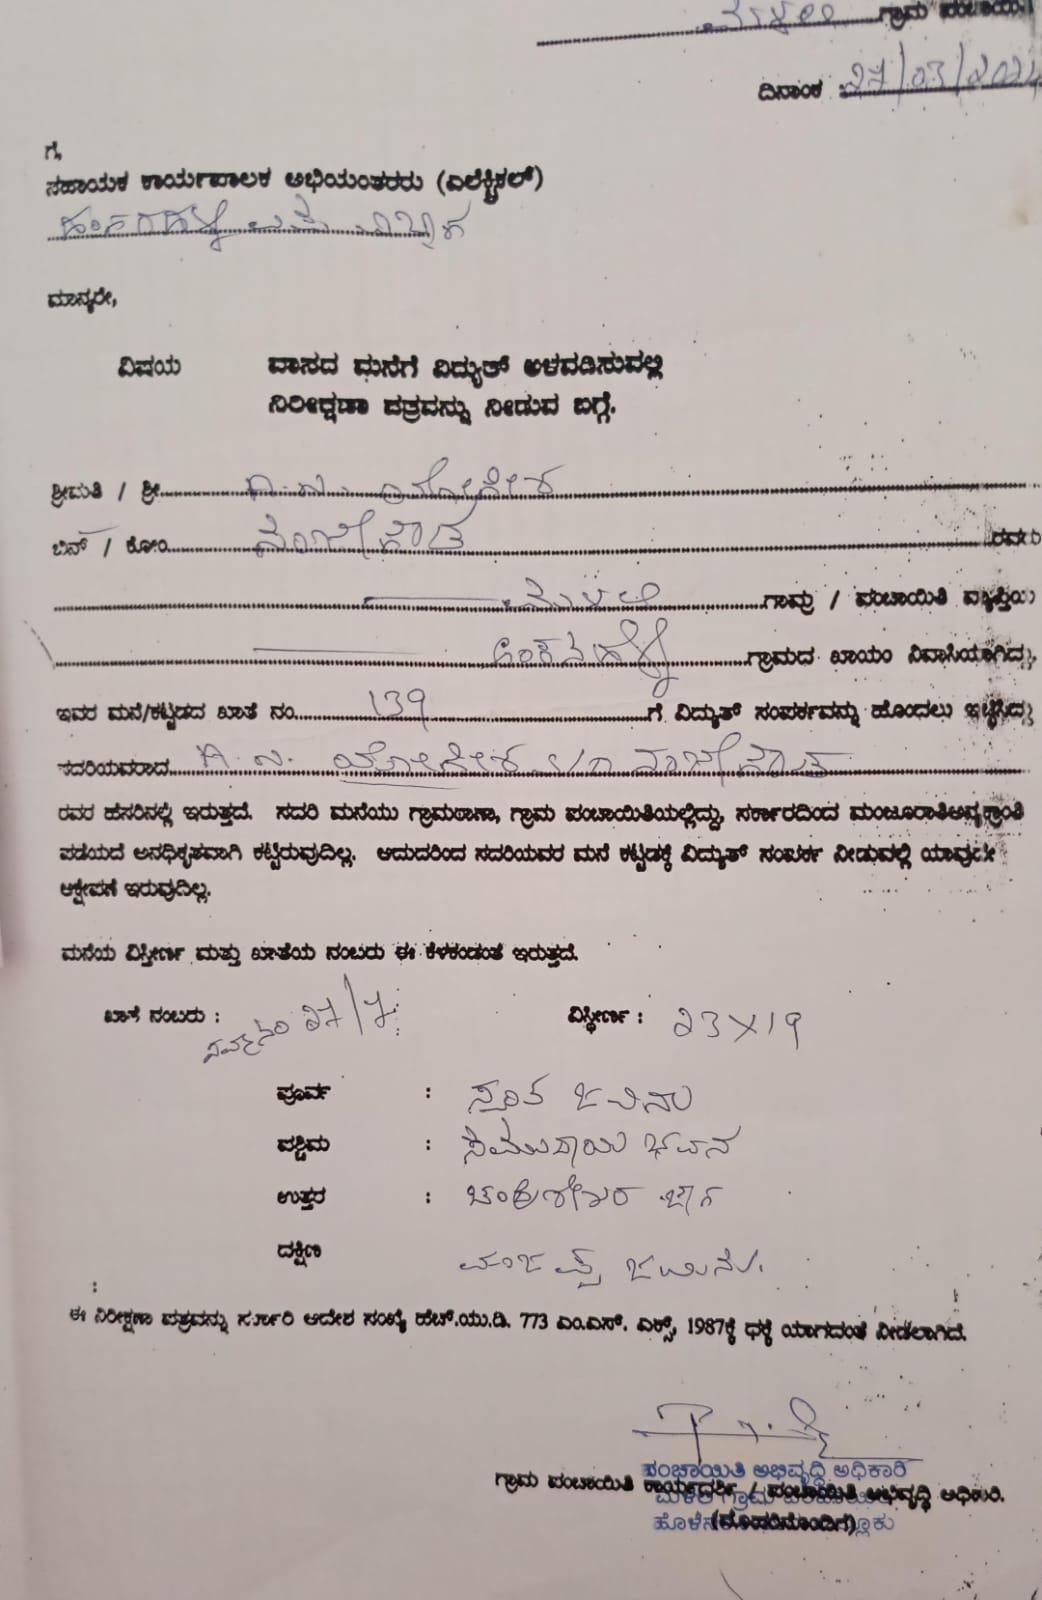 ಗ್ರಾಮ ಪಂಚಾಯಿತಿ
ದಿನಾಂಕ : 27/03/2024
ಗೆ,
ಸಹಾಯಕ ಕಾರ್ಯಪಾಲಕ ಅಭಿಯಂತರರು (ಎಲೆಕ್ಟ್ರಿಕಲ್)
ಮಾನ್ಯರೇ,
ವಿಷಯ ವಾಸದ ಮನೆಗೆ ವಿದ್ಯುತ್ ಅಳವಡಿಸುವಲ್ಲಿ
ನಿರೀಕ್ಷಣಾ ಪತ್ರವನ್ನು ನೀಡುವ ಬಗ್ಗೆ.
ಶ್ರೀಮತಿ / ಶ್ರೀ ಎ.ಎನ್. ಯೋಗೇಶ
ಬಿನ್ / ಕೋಂ ನಂಜೇಗೌಡ ರವರು
ಮಳಲಿ ಗ್ರಾಮ / ಪಂಚಾಯಿತಿ ವ್ಯಾಪ್ತಿಯ
ಅಂಕನಹಳ್ಳಿ ಗ್ರಾಮದ ಖಾಯಂ ನಿವಾಸಿಯಾಗಿದ್ದು,
ಇವರ ಮನೆ/ಕಟ್ಟಡದ ಖಾತೆ ನಂ. 139 ಗೆ ವಿದ್ಯುತ್ ಸಂಪರ್ಕವನ್ನು ಹೊಂದಲು ಇಚ್ಛಿಸಿದ್ದು
ಸದರಿಯವರಾದ A.N. ಯೋಗೇಶ
ರವರ ಹೆಸರಿನಲ್ಲೆ ಇರುತ್ತದೆ. ಸದರಿ ಮನೆಯು ಗ್ರಾಮಠಾಣಾ, ಗ್ರಾಮ ಪಂಚಾಯಿತಿಯಲ್ಲಿದ್ದು, ಸರ್ಕಾರದಿಂದ
ಪಡೆಯದೆ ಅನಧಿಕೃತವಾಗಿ ಕಟ್ಟಿರುವುದಿಲ್ಲ. ಆದುದರಿಂದ ಸದರಿಯವರ ಮನೆ ಕಟ್ಟಡಕ್ಕೆ ವಿದ್ಯುತ್ ಸಂಪರ್ಕ ನೀಡುವಲ್ಲಿ ಯಾವುದೇ
ಆಕ್ಷೇಪಣೆ ಇರುವುದಿಲ್ಲ.
ಮನೆಯ ವಿಸ್ತೀರ್ಣ ಮತ್ತು ಖಾತೆಯ ನಂಬರು ಈ ಕೆಳಕಂಡಂತೆ ಇರುತ್ತದೆ.
ಖಾತೆ ನಂಬರು : 27/7 ವಿಸ್ತೀರ್ಣ : 23X19
ಪೂರ್ವ :
ಪಶ್ಚಿಮ : ಸಮುದಾಯ ಭವನ
ಉತ್ತರ : ಜಾಗ
ದಕ್ಷಿಣ ಜಮೀನು.
ಈ ನಿರೀಕ್ಷಣಾ ಪತ್ರವನ್ನು ಸರ್ಕಾರಿ ಆದೇಶ ಸಂಖ್ಯೆ ಹೆಚ್.ಯು.ಡಿ. 773 ಎಂ.ಎಸ್. ಎಕ್ಸ್, 1987ಕ್ಕೆ ಧಕ್ಕೆ ಯಾಗದಂತೆ ನೀಡಲಾಗಿದೆ.
ಪಂಚಾಯಿತಿ ಅಭಿವೃದ್ಧಿ ಅಧಿಕಾರಿ
ಗ್ರಾಮ ಪಂಚಾಯಿತಿ ಕಾರ್ಯದರ್ಶಿ / ಪಂಚಾಯಿತಿ ಅಭಿವೃದ್ಧಿ ಅಧಿಕಾರಿ.
(ಮೊಹರಿನೊಂದಿಗೆ)